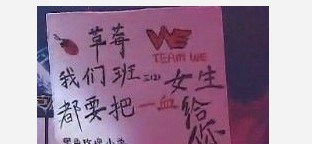 草莓 WE
TEAM WE
我们班三(2)女生
都要把一血给
你